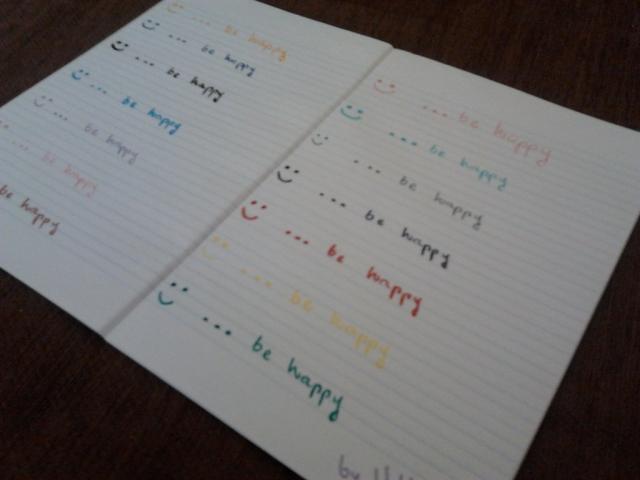 ... be happy
... be happy
... be happy
... be happy
... be happy
... be happy
be happy
... be happy
... be happy
... be happy
... be happy
... be happy
... be happy
... be happy
by